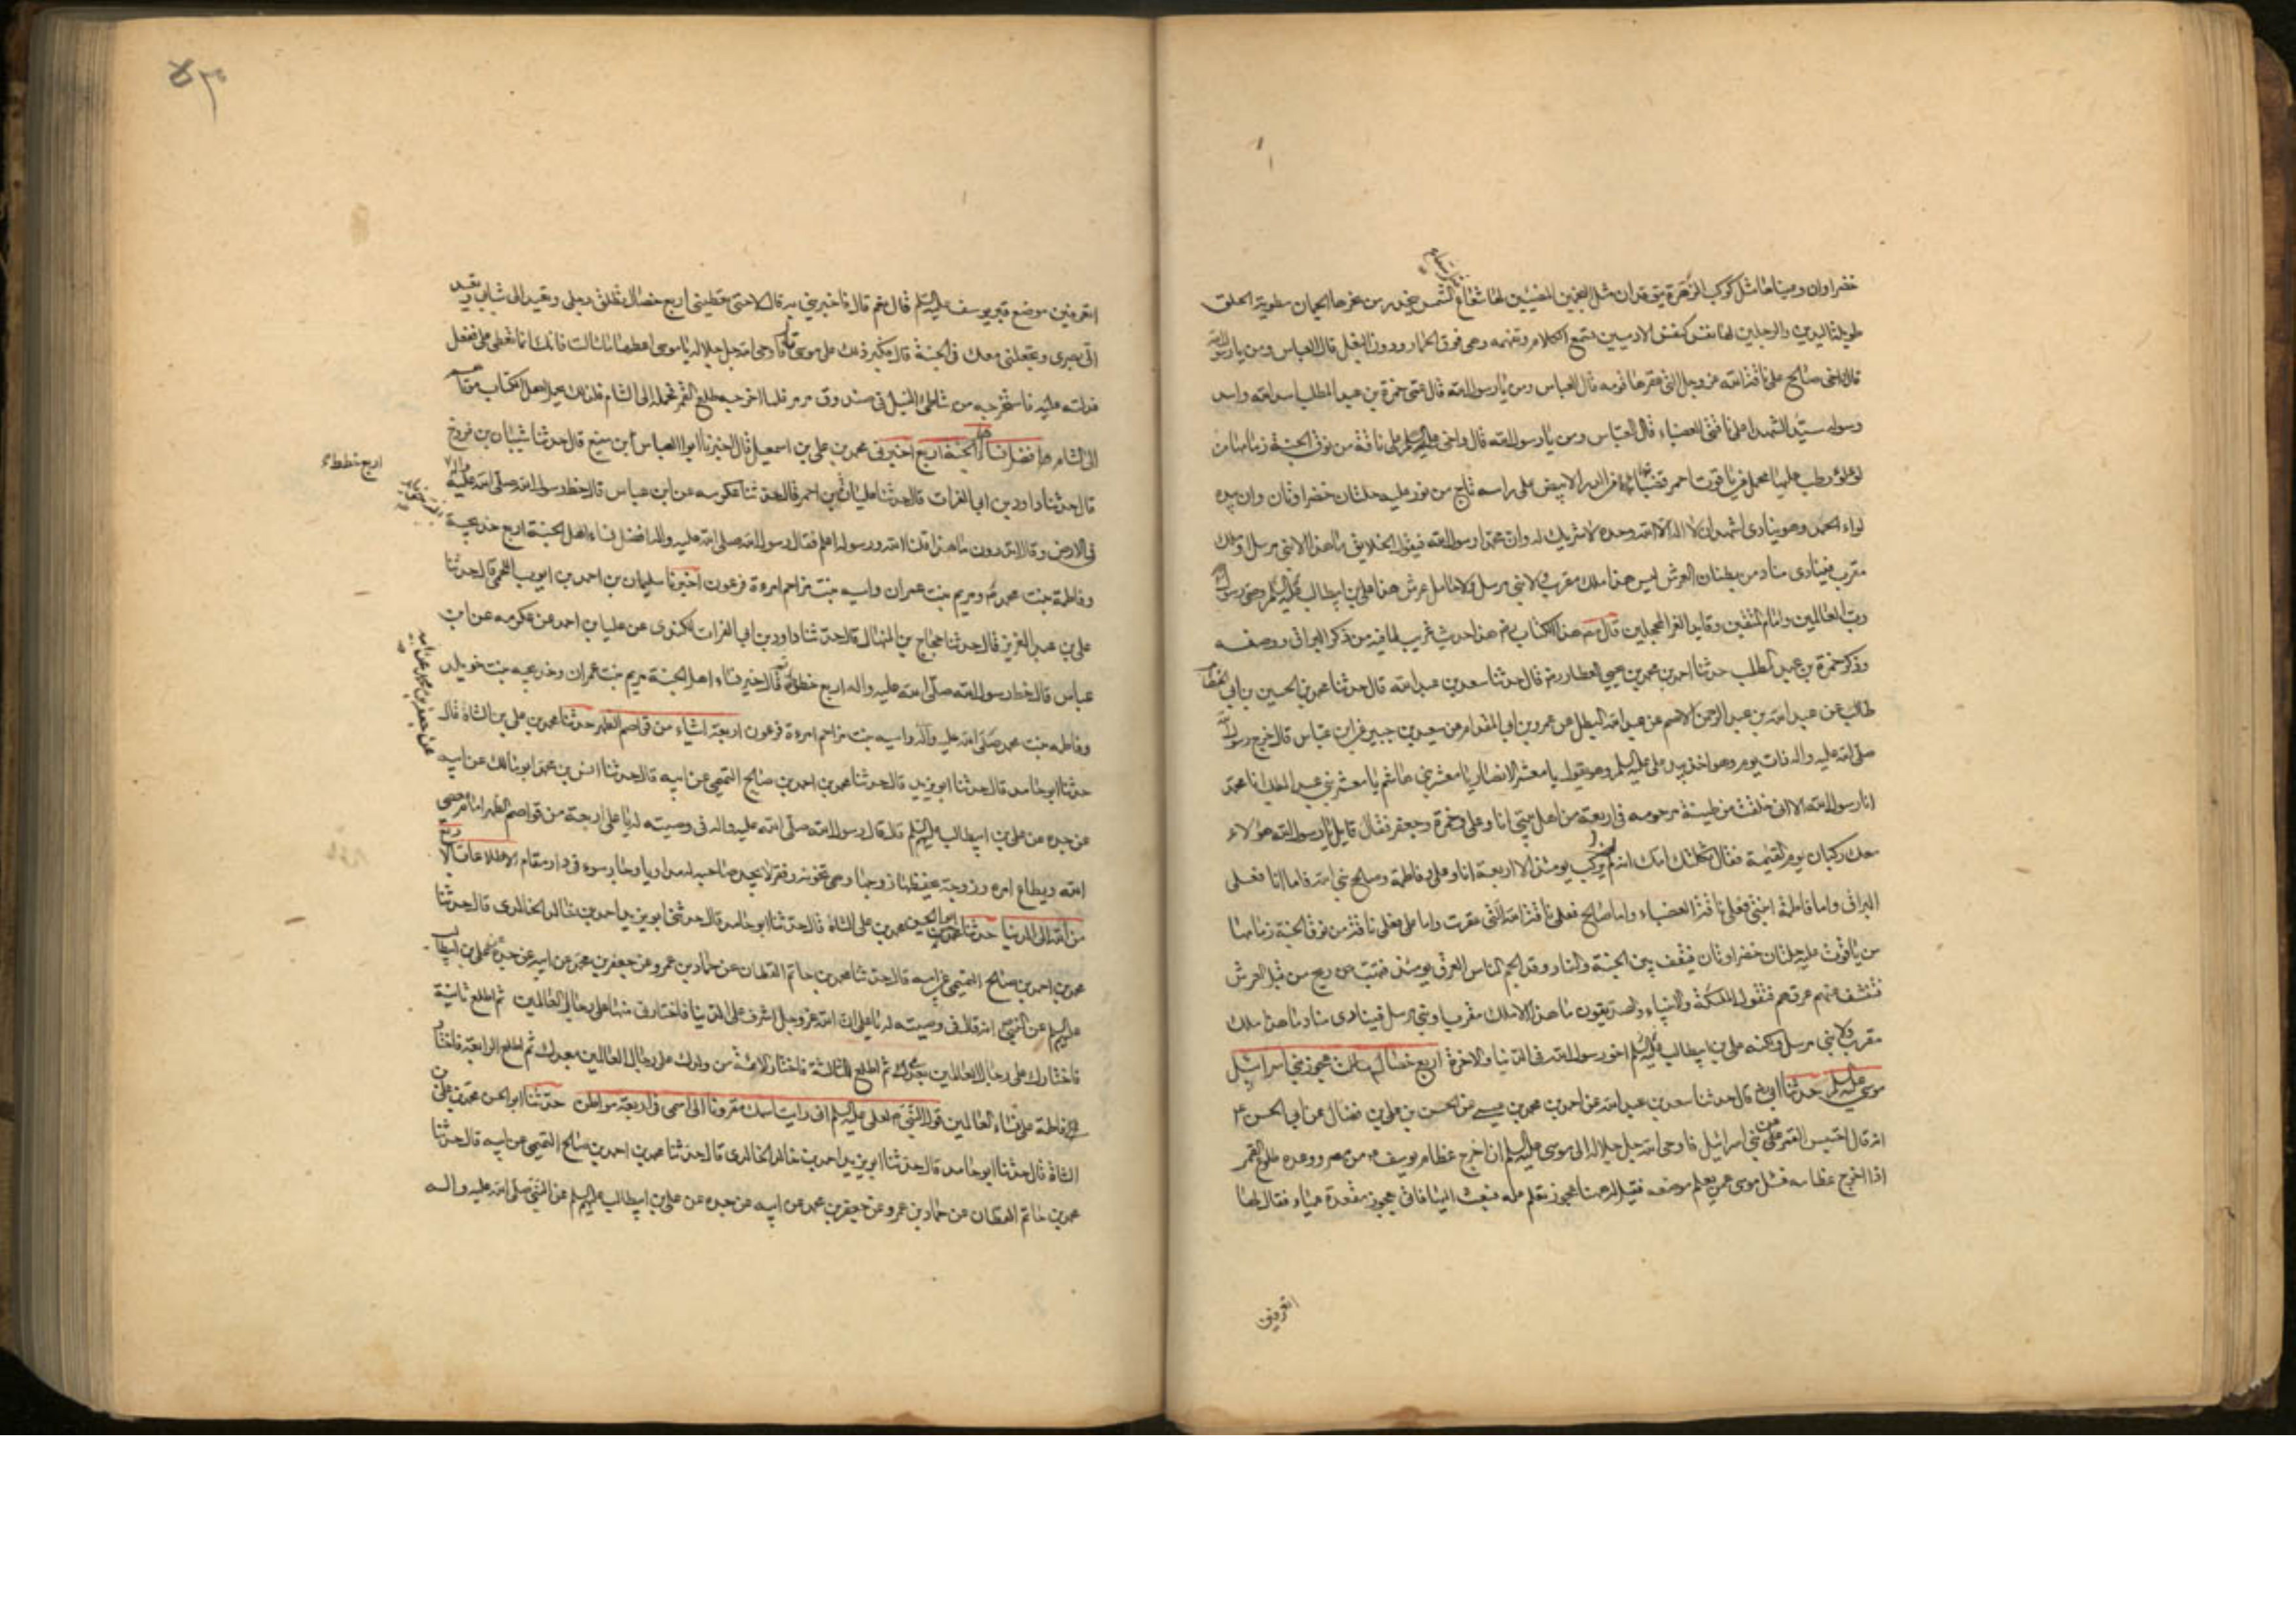 خضراوان وعيناها مثل كوكب الزهرة يتوقدان مثل النجمين المضيئين لها شعاع مثل شعاع الشمس ينحدر من نحرها الجمان مطوية الخلق
طويلة اليدين والرجلين لها نفس كنفس الادميين تسمع الكلام وتفهمه وهى فوق الحمار ودون البغل قال العباس ومن يا رسول الله
قال اخى صالح على ناقة الله عز وجل التى عقرها قومه قال العباس ومن يا رسول الله قال عمى حمزة بن عبد المطلب اسد الله واسد
رسوله سيد الشهداء على ناقتى العضباء قال العباس ومن يا رسول الله قال واخى على عليه السلم على ناقة من نوق الجنة زمامها من
لؤلؤ رطب عليها محمل من ياقوت احمر قضبانها من الدر الابيض على راسه تاج من نور عليه حلتان خضراوتان وان بيده
لواء الحمد وهو ينادى اشهد ان لا اله الا الله وحده لا شريك له وان محمدا رسول الله فيقول الخلايق ما هذا الا نبى مرسل او ملك
مقرب فينادى مناد من بطنان العرش ليس هذا ملك مقرب ولا نبى مرسل ولا حامل عرش هذا على بن ابيطالب عليه السلم وصى رسول
رب العالمين وامام المتقين وقايد الغر المحجلين قال مص هذا الكتاب رضى هذا حديث غريب لما فيه من ذكر البراق ووصفه
وذكر حمزة بن عبد المطلب حدثنا احمد بن محمد بن يحيى العطار رضى قال حدثنا سعد بن عبد الله قال حدثنا محمد بن الحسين بن ابى الخطاب
طالب عن عبد الله بن عبد الرحمن الاصم عن عبد الله البطل عن عمرو بن ابى المقدام عن سعيد بن جبير عن ابن عباس قال خرج رسول الله
صلى الله عليه واله ذات يوم وهو اخذ بيد على عليه السلم وهو يقول يا معشر الانصار يا معشر بنى هاشم يا معشر بنى عبد المطلب انا محمد
انا رسول الله الا انى خلقت من طينة مرحومه فى اربعة من اهل بيتى انا وعلى وحمزة وجعفر فقال قايل يا رسول الله هؤلاء
معك ركبان يوم القيمة فقال ثكلتك امك انه لن يركب يومئذ الا اربعة انا وعلى وفاطمة وصالح نبى الله فاما انا فعلى
البراق واما فاطمة ابنتى فعلى ناقتى العضباء واما صالح فعلى ناقة الله التى عقرت واما على فعلى ناقة من نوق الجنة زمامها
من ياقوت عليه حلتان خضراوتان فيقف بين الجنة والنار وقد الجم الناس العرق يومئذ فتهب ريح من قبل العرش
فتنشف عنهم عرقهم فتقول الملئكة والانبياء والصديقون ما هذا الا ملك مقرب او نبى مرسل فينادى مناد ما هذا ملك
مقرب ولا نبى مرسل ولكنه على بن ابيطالب عليه السلم اخو رسول الله فى الدنيا والاخرة اربع خصال سالت عجوز بنى اسرائيل
موسى عليه السلم حدثنا ابى رضى قال حدثنا سعد بن عبد الله عن احمد بن محمد بن عيسى عن الحسن بن على بن فضال عن ابى الحسن ع
انه قال احتبس القمر عن بنى اسرائيل فاوحى الله جل جلاله الى موسى عليه السلم ان اخرج عظام يوسف من مصر ووعده طلوع القمر
اذا اخرج عظامه فسئل موسى عمن يعلم موضعه فقيل له هيهنا عجوز تعلم علمه فبعث اليها فاتى بعجوز مقعدة عمياء فقال لها
اتعرفين
اتعرفين موضع قبر يوسف عليه السلم قال نعم قال فاخبرينى به قال لا حتى تعطينى اربع خصال تطلق رجلى وتعيد الى شبابى وتعيد
الى بصرى وتجعلنى معك فى الجنة قال فكبر ذلك على موسى قال فاوحى الله جل جلاله يا موسى اعطها ما سالت فانك انما تعطى على ففعل
فدلته عليه فاستخرجه من شاطئ النيل فى صندوق مرمر فلما اخرجه طلع القمر فحمله الى الشام فلذلك يحمل اهل الكتاب موتاهم
الى الشام افضل نساء اهل الجنة اربع اخبرنى محمد بن على بن اسمعيل قال اخبرنا ابو العباس ابن منيع قال حدثنا شيبان بن فروخ
قال حدثنا داود بن ابى الفرات قال حدثنا علياء بن احمر قال حدثنا عكرمه عن ابن عباس قال خط رسول الله صلى الله عليه واله
اربع خطط
فى الارض وقال اتدرون ما هذا قلنا الله ورسوله اعلم فقال رسول الله صلى الله عليه واله افضل نساء اهل الجنة اربع خديجة
وفاطمة بنت محمد ومريم بنت عمران واسيه بنت مزاحم امرءة فرعون اخبرنا سليمان بن احمد بن ايوب اللخمى قال حدثنا
على بن عبد العزيز قال حدثنا حجاج بن المنهال قال حدثنا داود بن ابى الفرات الكندى عن علياء بن احمد عن عكرمه عن ابن
عباس قال خط رسول الله صلى الله عليه واله اربع خطط ثم قال خير نساء اهل الجنة مريم بنت عمران وخديجه بنت خويلد
وفاطمه بنت محمد صلى الله عليه واله واسيه بنت مزاحم امرءة فرعون اربعة اشياء من قواصم الظهر حدثنا محمد بن على بن الشاة قال
حدثنا ابو حامد قال حدثنا ابو يزيد قال حدثنا محمد بن احمد بن صالح التميمى عن ابيه قال حدثنا انس بن محمد ابو مالك عن ابيه
عن جعفر بن محمد عن ابيه
عن جده عن على بن ابيطالب عليهم السلم قال قال رسول الله صلى الله عليه واله فى وصيته له يا على اربعة من قواصم الظهر امام يعصى
الله ويطاع امره وزوجة يحفظها زوجها وهى تخونه وفقر لا يجد صاحبه له مداويا وجار سوء فى دار مقام الاطلاعات الا
من الله الى الدنيا حدثنا ابو الحسين محمد بن على الشاة قال حدثنا ابو حامد قال حدثنى ابو يزيد احمد بن خالد الخالدى قال حدثنا
محمد بن احمد بن صالح التميمى عن ابيه قال حدثنا محمد بن حاتم القطان عن حماد بن عمرو عن جعفر بن محمد عن ابيه عن جده عن على بن ابيطالب
عليه السلم عن النبى انه قال فى وصيته له يا على ان الله عز وجل اشرف على الدنيا فاختارنى منها على رجال العالمين ثم اطلع ثانية
فاختارك على رجال العالمين بعدى ثم اطلع الثالثة فاختار الائمة من ولدك على رجال العالمين بعدك ثم اطلع الرابعة فاختار
فاطمة على نساء العالمين قول النبى لعلى عليه السلم انى رايت اسمك مقرونا الى اسمى فى اربعة مواطن حدثنا ابو الحسن محمد بن على بن
الشاة قال حدثنا ابو حامد قال حدثنا ابو يزيد احمد بن خالد الخالدى قال حدثنا محمد بن احمد بن صالح التميمى عن ابيه قال حدثنا
محمد بن حاتم القطان عن حماد بن عمرو عن جعفر بن محمد عن ابيه عن جده عن على بن ابيطالب عليهم السلم عن النبى صلى الله عليه واله